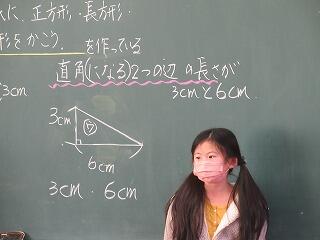 に、正方形・長方形・
形をかこう。 を作っている
直角(になる)2つの辺の長さが
3cm 3cmと6cm
3cm
6cm
3cm・6cm